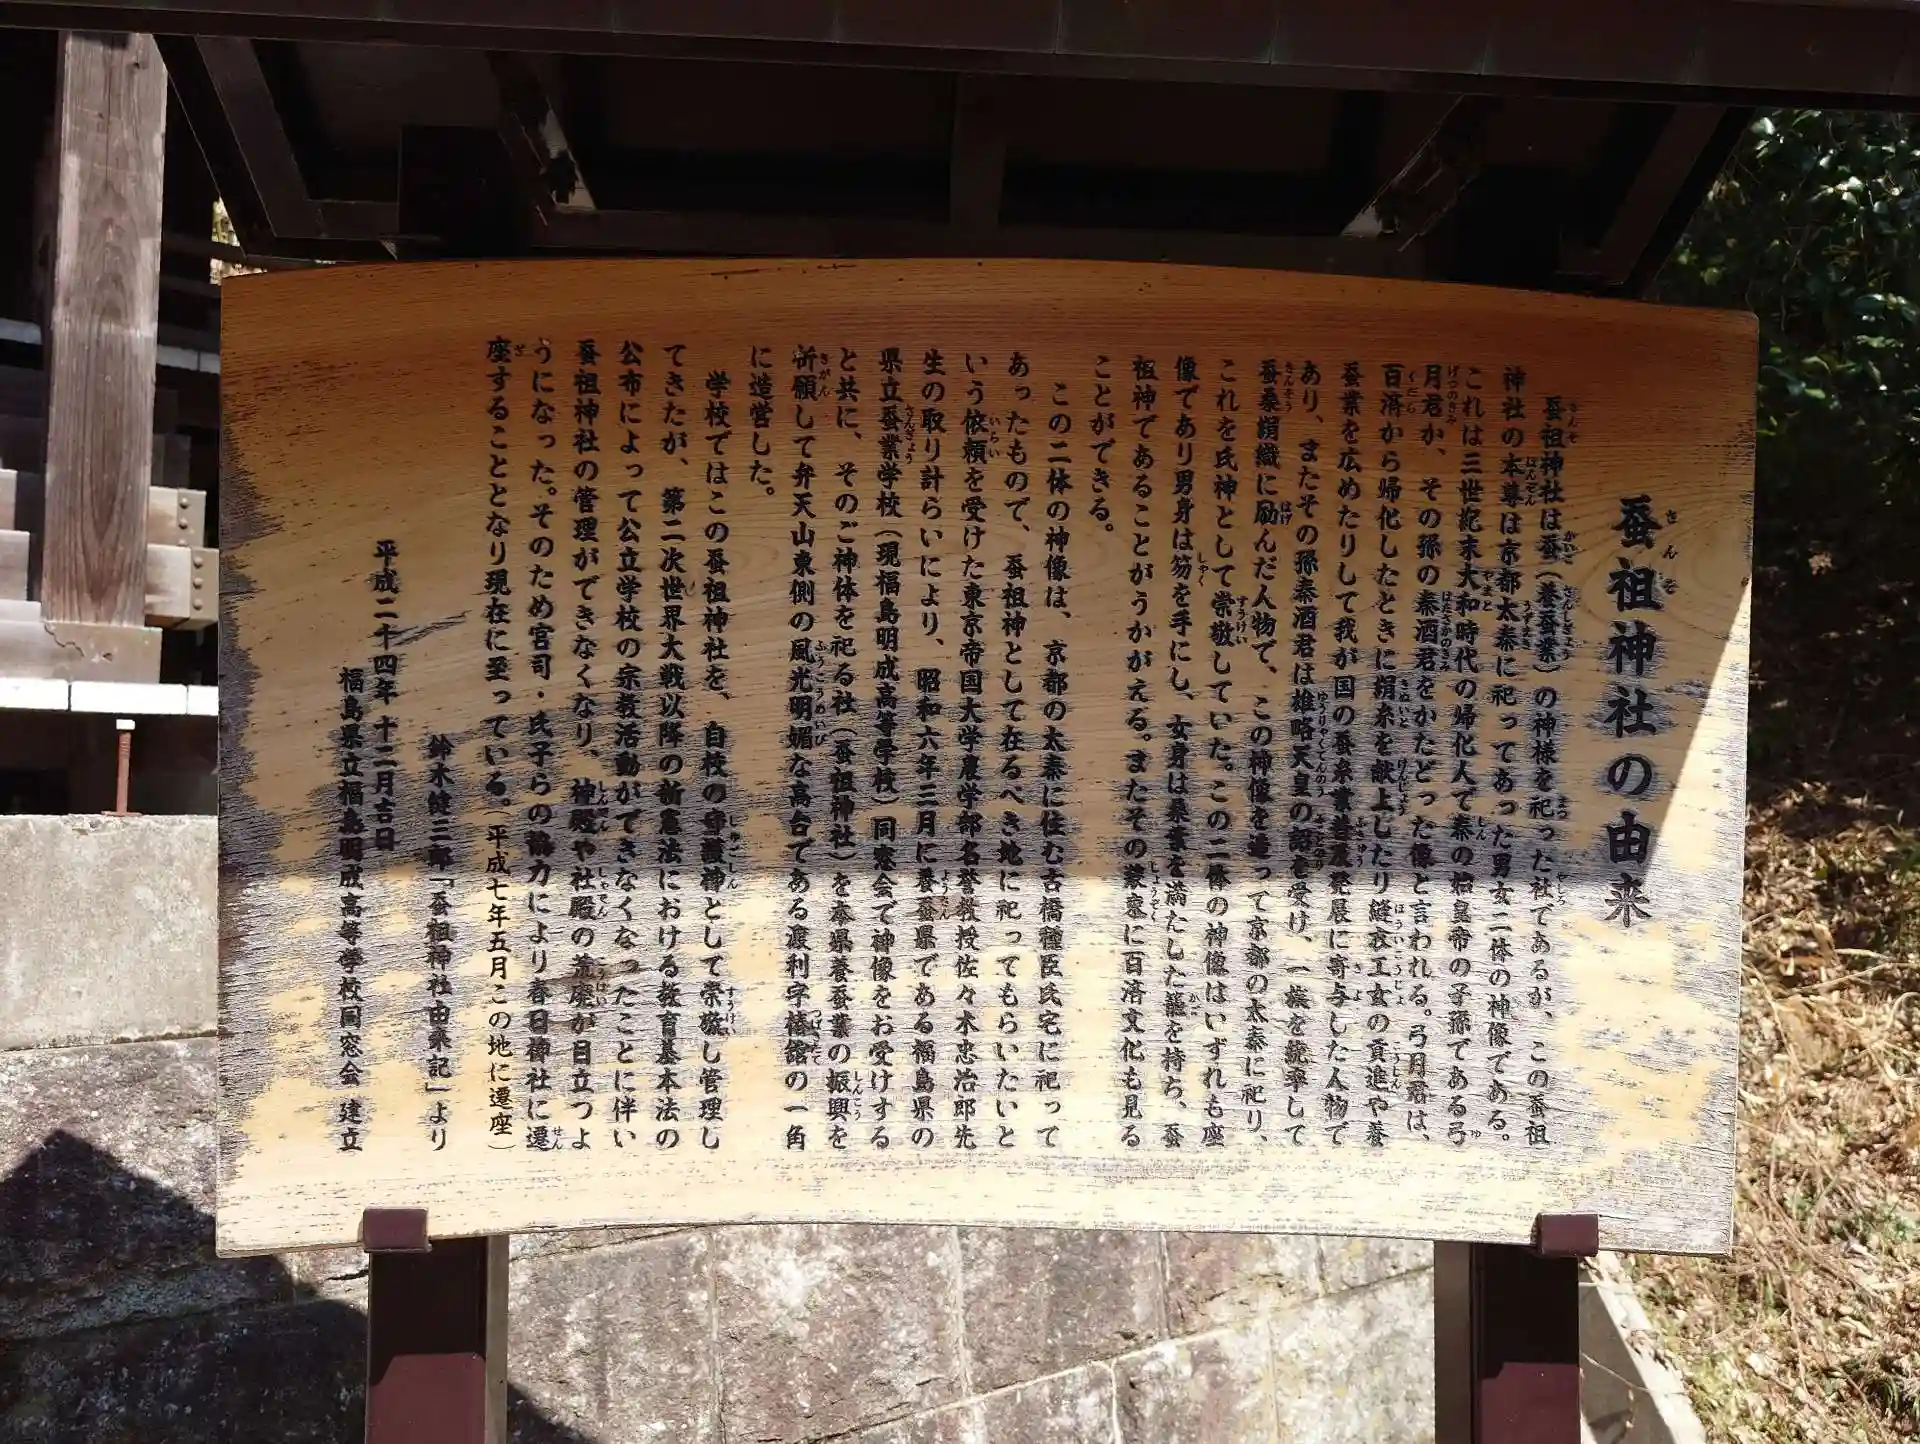 蚕祖神社の由来
蚕祖神社は蚕（養蚕業）の神様を祀った社であるが、この蚕祖
神社の本尊は京都太秦に祀ってあった男女二体の神像である。
これは三世紀末大和時代の帰化人で秦の始皇帝の子孫である弓
月君か、その孫の秦酒君をかたどった像と言われる。弓月君は、
百済から帰化したときに絹糸を献上したり縫衣工女の貢進や養
蚕業を広めたりして我が国の蚕糸業普及発展に寄与した人物で
あり、またその孫秦酒君は雄略天皇の詔を受け、一族を統率して
蚕桑絹織に励んだ人物で、この神像を造って京都の太秦に祀り、
これを氏神として崇敬していた。この二体の神像はいずれも座
像であり男身は笏を手にし、女身は桑葉を満たした籠を持ち、蚕
祖神であることがうかがえる。またその装束に百済文化も見る
ことができる。
この二体の神像は、京都の太秦に住む古橋種臣氏宅に祀って
あったもので、蚕祖神として在るべき地に祀ってもらいたいと
いう依頼を受けた東京帝国大学農学部名誉教授佐々木忠治郎先
生の取り計らいにより、昭和六年三月に養蚕県である福島県の
県立蚕業学校（現福島明成高等学校）同窓会で神像をお受けする
と共に、そのご神体を祀る社（蚕祖神社）を本県養蚕業の振興を
祈願して弁天山東側の風光明媚な高台である渡利字椿舘の一角
に造営した。
学校ではこの蚕祖神社を、自校の守護神として崇敬し管理し
てきたが、第二次世界大戦以降の新憲法における教育基本法の
公布によって公立学校の宗教活動ができなくなったことに伴い
蚕祖神社の管理ができなくなり、神殿や社殿の荒廃が目立つよ
うになった。そのため宮司・氏子らの協力により春日神社に遷
座することとなり現在に至っている。（平成七年五月この地に遷座）
鈴木健三郎「蚕祖神社由来記」より
平成二十四年十二月吉日
福島県立福島明成高等学校同窓会 建立